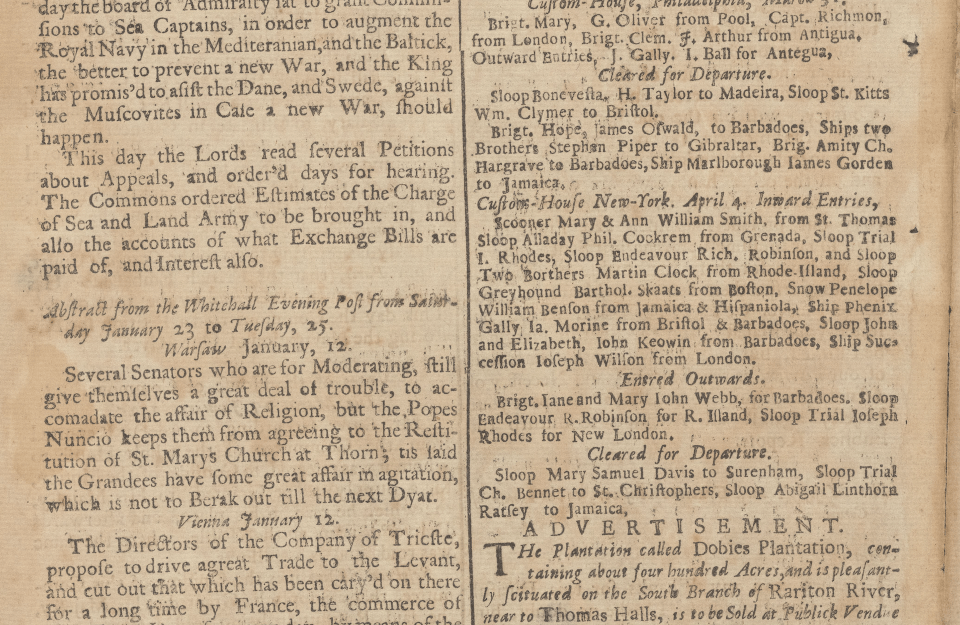 day the board of Admiralty sat to grant Commis-
ſions to Sea Captains, in order to augment the
Royal Navy in the Mediteranian, and the Baltick,
the better to prevent a new War, and the King
has promis'd to aſiſt the Dane, and Swede, againſt
the Muſcovites in Caſe a new War, ſhould
happen.
This day the Lords read ſeveral Petitions
about Appeals, and order'd days for hearing.
The Commons ordered Eſtimates of the Charge
of Sea and Land Army to be brought in, and
alſo the accounts of what Exchange Bills are
paid of, and Intereſt alſo.
Abſtract from the Whitehall Evening Poſt from Satur-
day January 23 to Tueſday, 25.
Warſaw January, 12.
Several Senators who are for Moderating, ſtill
give themſelves a great deal of trouble, to ac-
comadate the affair of Religion, but the Popes
Nuncio keeps them from agreeing to the Reſti-
tution of St. Marys Church at Thorn; tis ſaid
the Grandees have ſome great affair in agitation,
which is not to Berak out till the next Dyat.
Vienna January 12.
The Directors of the Company of Trieſte,
propoſe to drive agreat Trade to the Levant,
and cut out that which has been cary'd on there
for a long time by France, the commerce of
by means of the
Cuſtom-House, Philadelphia,
Brigt. Mary, G. Oliver from Pool, Capt. Richmon,
from London, Brigt. Clem. J. Arthur from Antigua,
Outward Entries, J. Gally. I. Ball for Antegua,
Cleared for Departure.
Sloop Boneveſta, H. Taylor to Madeira, Sloop St. Kitts
Wm. Clymer to Briſtol.
Brigt. Hope, James Oſwald, to Barbadoes, Ships two
Brothers Stephen Piper to Gibraltar, Brig. Amity Ch.
Hargrave to Barbadoes, Ship Marlborough Iames Gorden
to Jamaica,
Cuſtom-Houſe New-York. April 4. Inward Entries,
Scooner Mary & Ann William Smith, from St. Thomas
Sloop Alladay Phil. Cockrem from Grenada, Sloop Trial
I. Rhodes, Sloop Endeavour Rich. Robinson, and Sloop
Two Borthers Martin Clock from Rhode-Iſland, Sloop
Greyhound Barthol. Skaats from Boſton, Snow Penelope
William Benson from Jamaica & Hiſpaniola, Ship Phenix
Gally Ia. Morine from Briſtol & Barbadoes, Sloop John
and Elizabeth, Iohn Keowin from Barbadoes, Ship Suc-
ceſſion Ioſeph Wilſon from London.
Entred Outwards.
Brigt. Iane and Mary Iohn Webb, for Barbadoes. Sloop
Endeavour R. Robinson for R. Iſland, Sloop Trial Ioſeph
Rhodes for New London.
Cleared for Departure.
Sloop Mary Samuel Davis to Surenham, Sloop Trial
Ch. Bennet to St. Chriſtophers, Sloop Abigail Linthorn
Ratſey to Jamaica,
ADVERTISEMENT.
THe Plantation called Dobies Plantation, con-
taining about four hundred Acres, and is pleaſant-
ly ſcituated on the South Branch of Rariton River,
near to Thomas Halls, is to be Sold at Publick Vendue